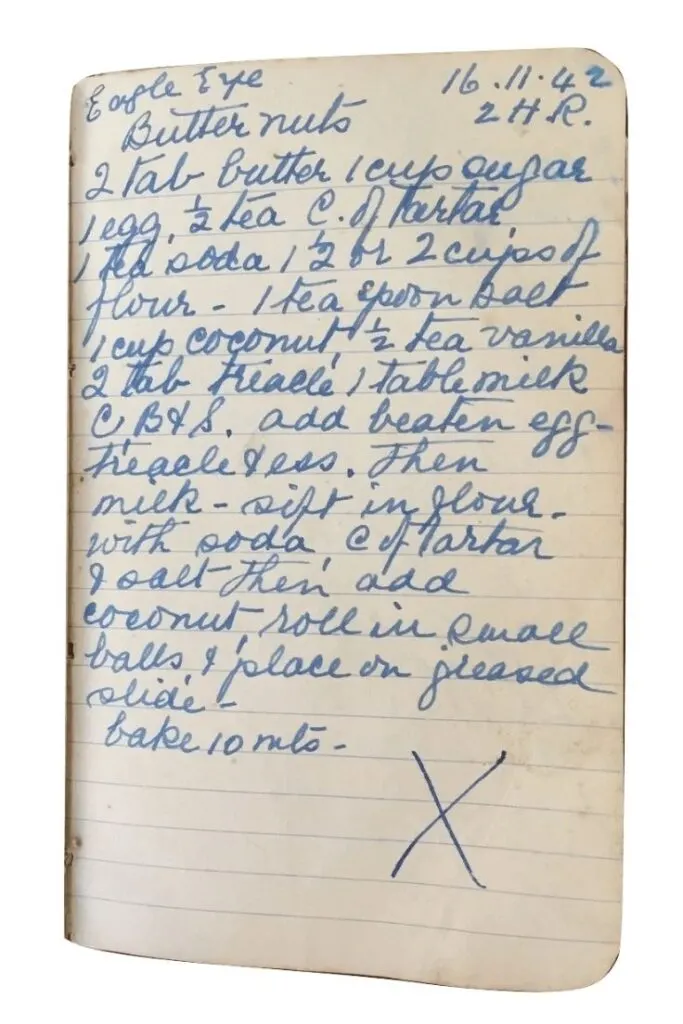 Eagle Eye 16.11.42
Butternuts 2 H R.
2 tab butter 1 cup sugar
1 egg, ½ tea C. of Tartar
1 tea soda 1 ½ or 2 cups of
flour - 1 tea spoon salt
1 cup coconut, ½ tea vanilla
2 tab treacle, 1 table milk
C, B & S. add beaten egg -
treacle & ess. Then
milk - sift in flour -
with soda, C of Tartar
& salt Then add
coconut, roll in small
balls & place on greased
slide -
bake 10 mts -
X